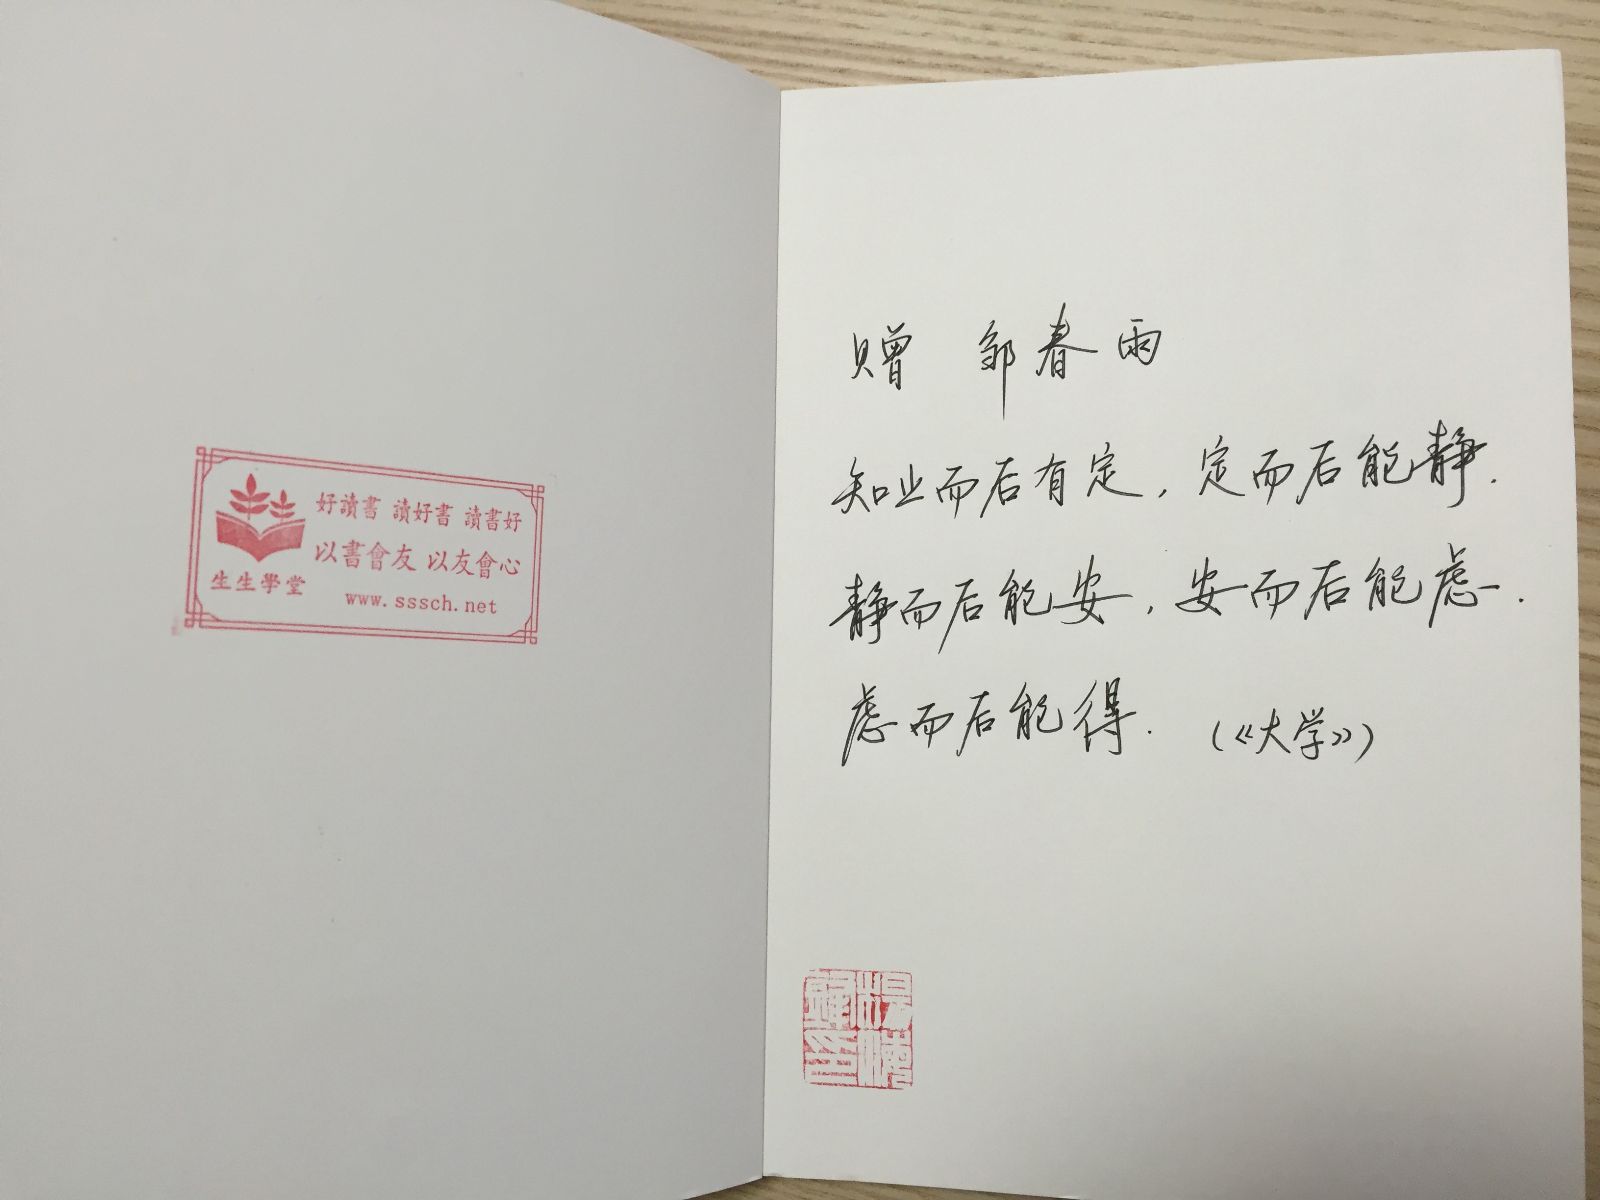 好讀書 讀好書 讀書好
以書會友 以友會心
生生學堂
www.sssch.net
赠 邹春雨
知止而后有定，定而后能静.
静而后能安，安而后能虑.
虑而后能得. (《大学》)